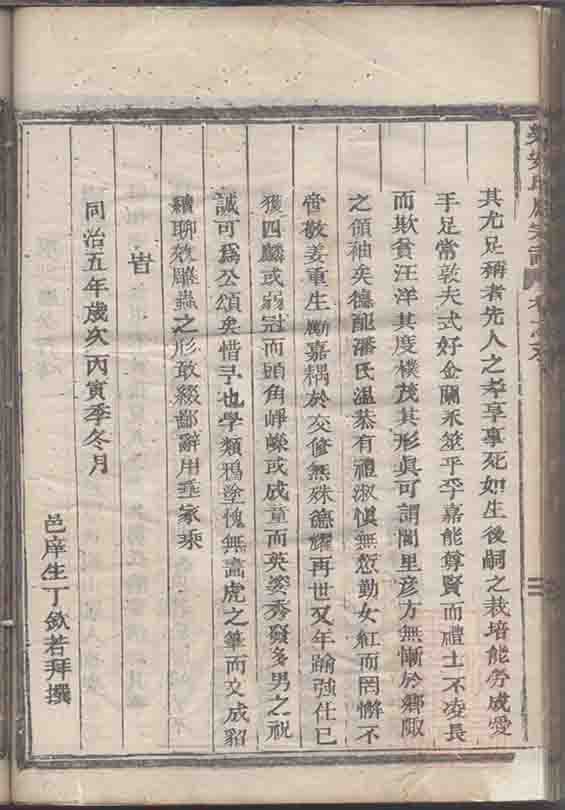 其尤足稱者先人之孝享事死如生後嗣之栽培能勞成愛
手足常敦夫式好金蘭永筮乎孚嘉能尊賢而禮士不凌長
而欺貧汪洋其度樸茂其形眞可謂閭里彦方無慚於鄉陬
之領袖矣德配潘氏溫恭有禮淑愼無愆勤女紅而罔懈不
啻敬姜重生勵嘉耦於交修無殊德耀再世又年踰強仕已
獲四麟或弱冠而頭角崢嶸或成童而英姿秀發多男之祝
誠可爲公頌矣惜予也學類鴉塗愧無畵虎之筆而文成貂
續聊效雕蟲之形敢綴鄙辭用垂家乘
旹
同治五年歲次丙寅季冬月
邑庠生丁欽若拜撰